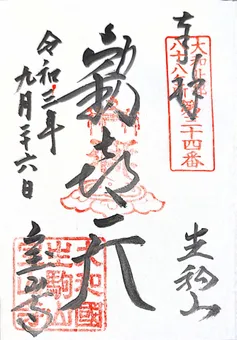 奉拝
大和北部
八十八ヶ所第三十四番
生駒山
歓喜天
大和國
生駒山
寶山寺
令和三年
九月二十六日